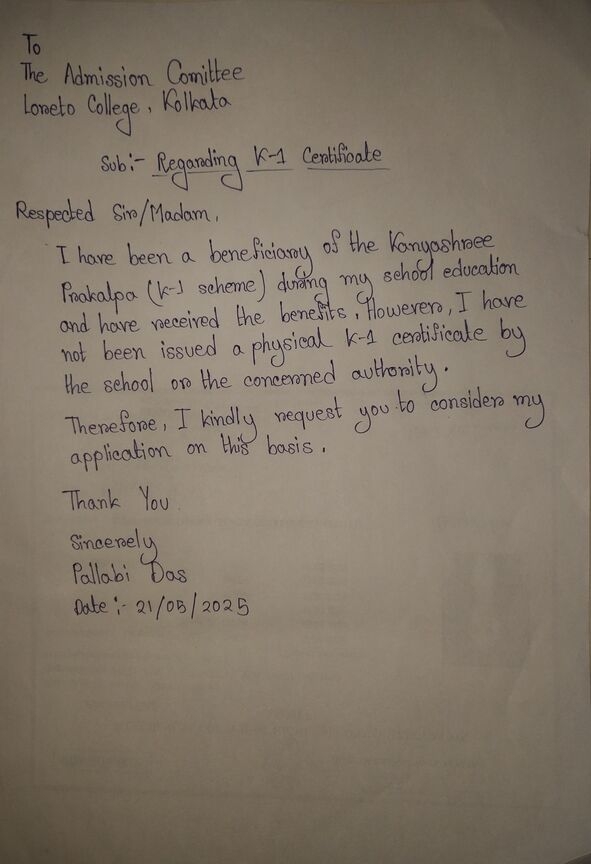 To
The Admission Comittee
Loreto College, Kolkata
Sub:- Regarding K-1 Certificate
Respected Sir/Madam,
I have been a beneficiary of the Kanyashree
Prakalpa (K-1 scheme) during my school education
and have received the benefits. However, I have
not been issued a physical K-1 certificate by
the school or the concerned authority.
Therefore, I kindly request you to consider my
application on this basis.
Thank You
Sincerely
Pallabi Das
Date :- 21/05/2025